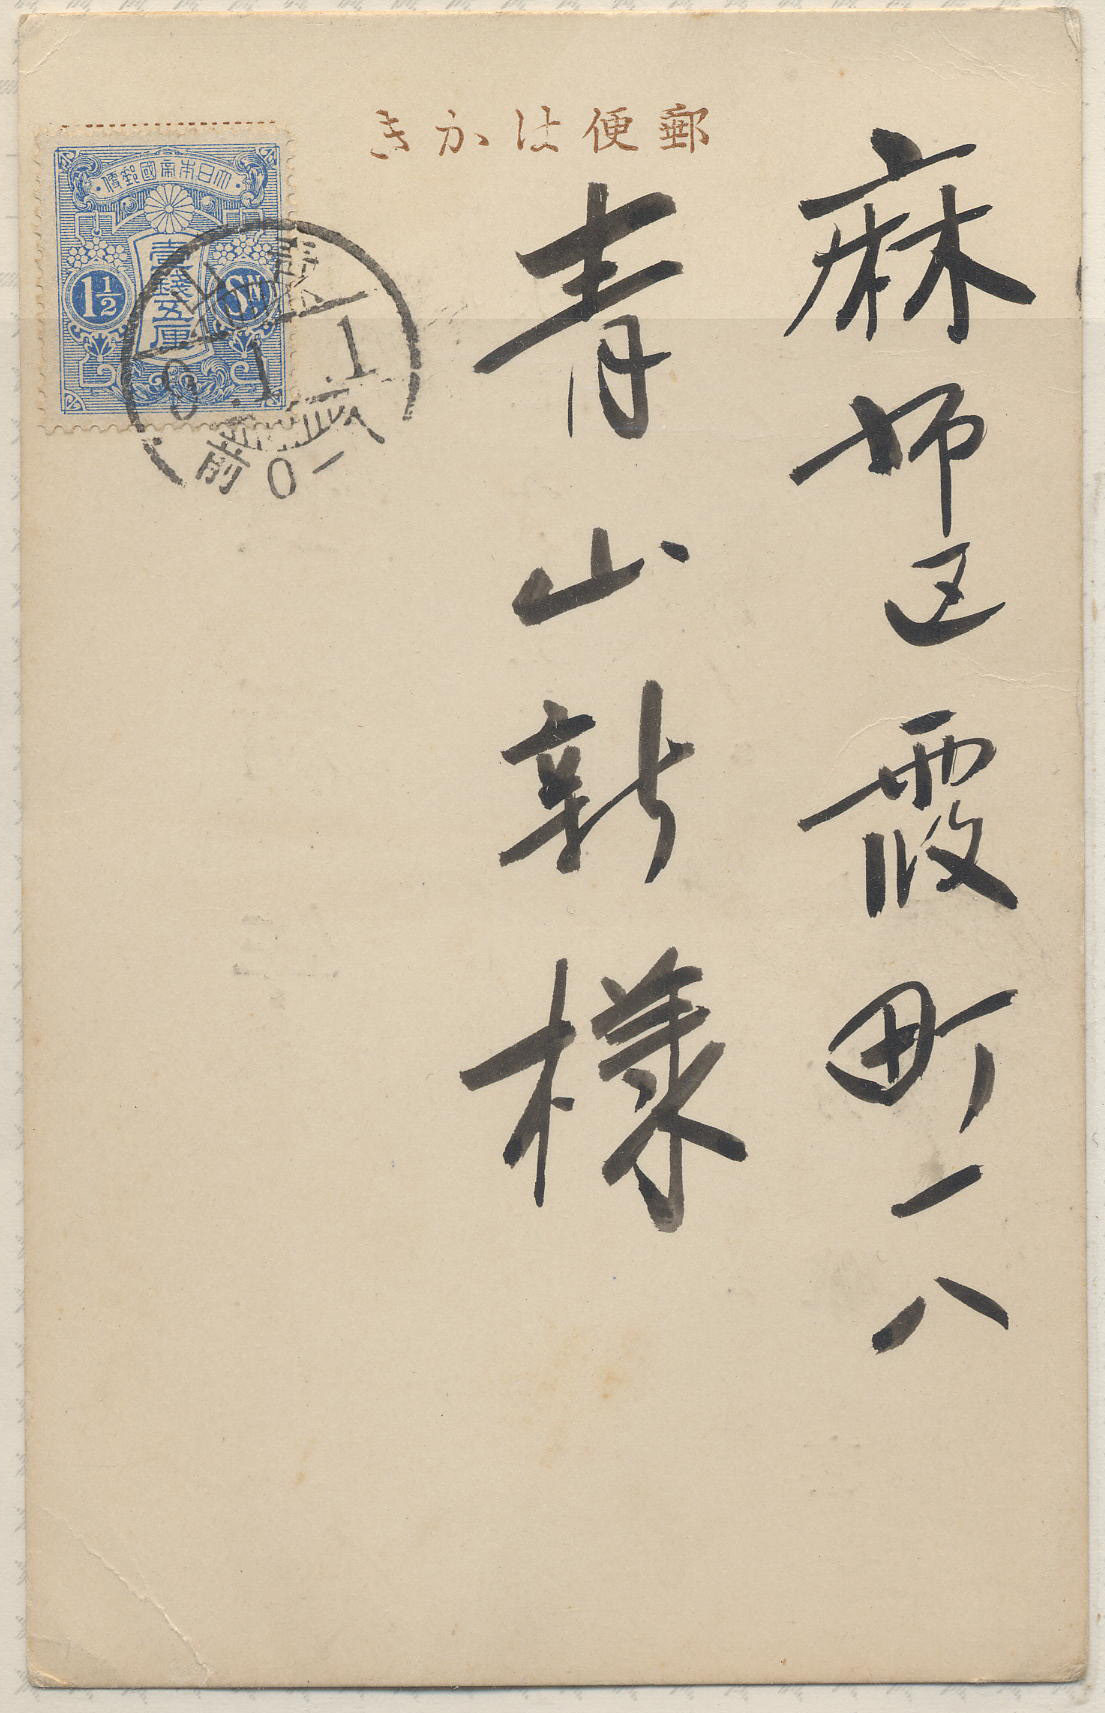 郵便はかき
麻布区霞町一八
青山新様
大日本帝國郵便
壹錢五厘
1½
Sn
8.1.1
前0-八